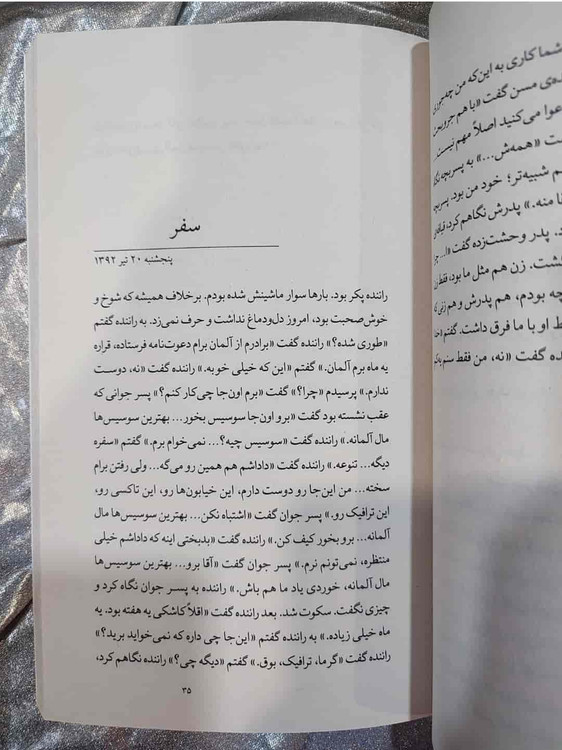 سفر
پنجشنبه ۲۰ تیر ۱۳۹۲
راننده پکر بود. بارها سوار ماشینش شده بودم. برخلاف همیشه که شوخ و
خوش‌صحبت بود، امروز دل‌ودماغ نداشت و حرف نمی‌زد. به راننده گفتم
«طوری شده؟» راننده گفت «برادرم از آلمان برام دعوت‌نامه فرستاده، قراره
یه ماه برم آلمان.» گفتم «این که خیلی خوبه.» راننده گفت «نه، دوست
ندارم.» پرسیدم «چرا؟» گفت «برم اون‌جا چی‌کار کنم؟» پسر جوانی که
عقب نشسته بود گفت «برو اون‌جا سوسیس بخور... بهترین سوسیس‌ها
مال آلمانه.» راننده گفت «سوسیس چیه؟... نمی‌خوام برم.» گفتم «سفره
دیگه... تنوعه.» راننده گفت «داداشم هم همین رو می‌گه... ولی رفتن برام
سخته... من این‌جا رو دوست دارم، این خیابون‌ها رو، این تاکسی رو،
این ترافیک رو.» پسر جوان گفت «اشتباه نکن... بهترین سوسیس‌ها مال
آلمانه... برو بخور کیف کن.» راننده گفت «بدبختی اینه که داداشم خیلی
منتظره، نمی‌تونم نرم.» پسر جوان گفت «آقا برو... بهترین سوسیس‌ها
مال آلمانه، خوردی یاد ما هم باش.» راننده به پسر جوان نگاه کرد و
چیزی نگفت. سکوت شد. بعد راننده گفت «اقلاً کاشکی یه هفته بود. یه
ماه خیلی زیاده.» به راننده گفتم «این‌جا چی داره که نمی‌خواید برید؟»
راننده گفت «گرما، ترافیک، بوق.» گفتم «دیگه چی؟» راننده نگاهم کرد،
۳۵
شما کاری به این‌که من چه‌جوری
مسن گفت «با هم
دعوا می‌کنید اصلاً مهم نیست.
«همه‌ش...» به پسربچه
شبیه‌تر؛ خود من بود. پسربچه
منه.» پدرش نگاهم کرد،
پدر وحشت‌زده گفت «ا...
زن هم مثل ما بود، فقط
بودم، هم پدرش و هم
او با ما فرق داشت. گفتم
گفت «نه، من فقط